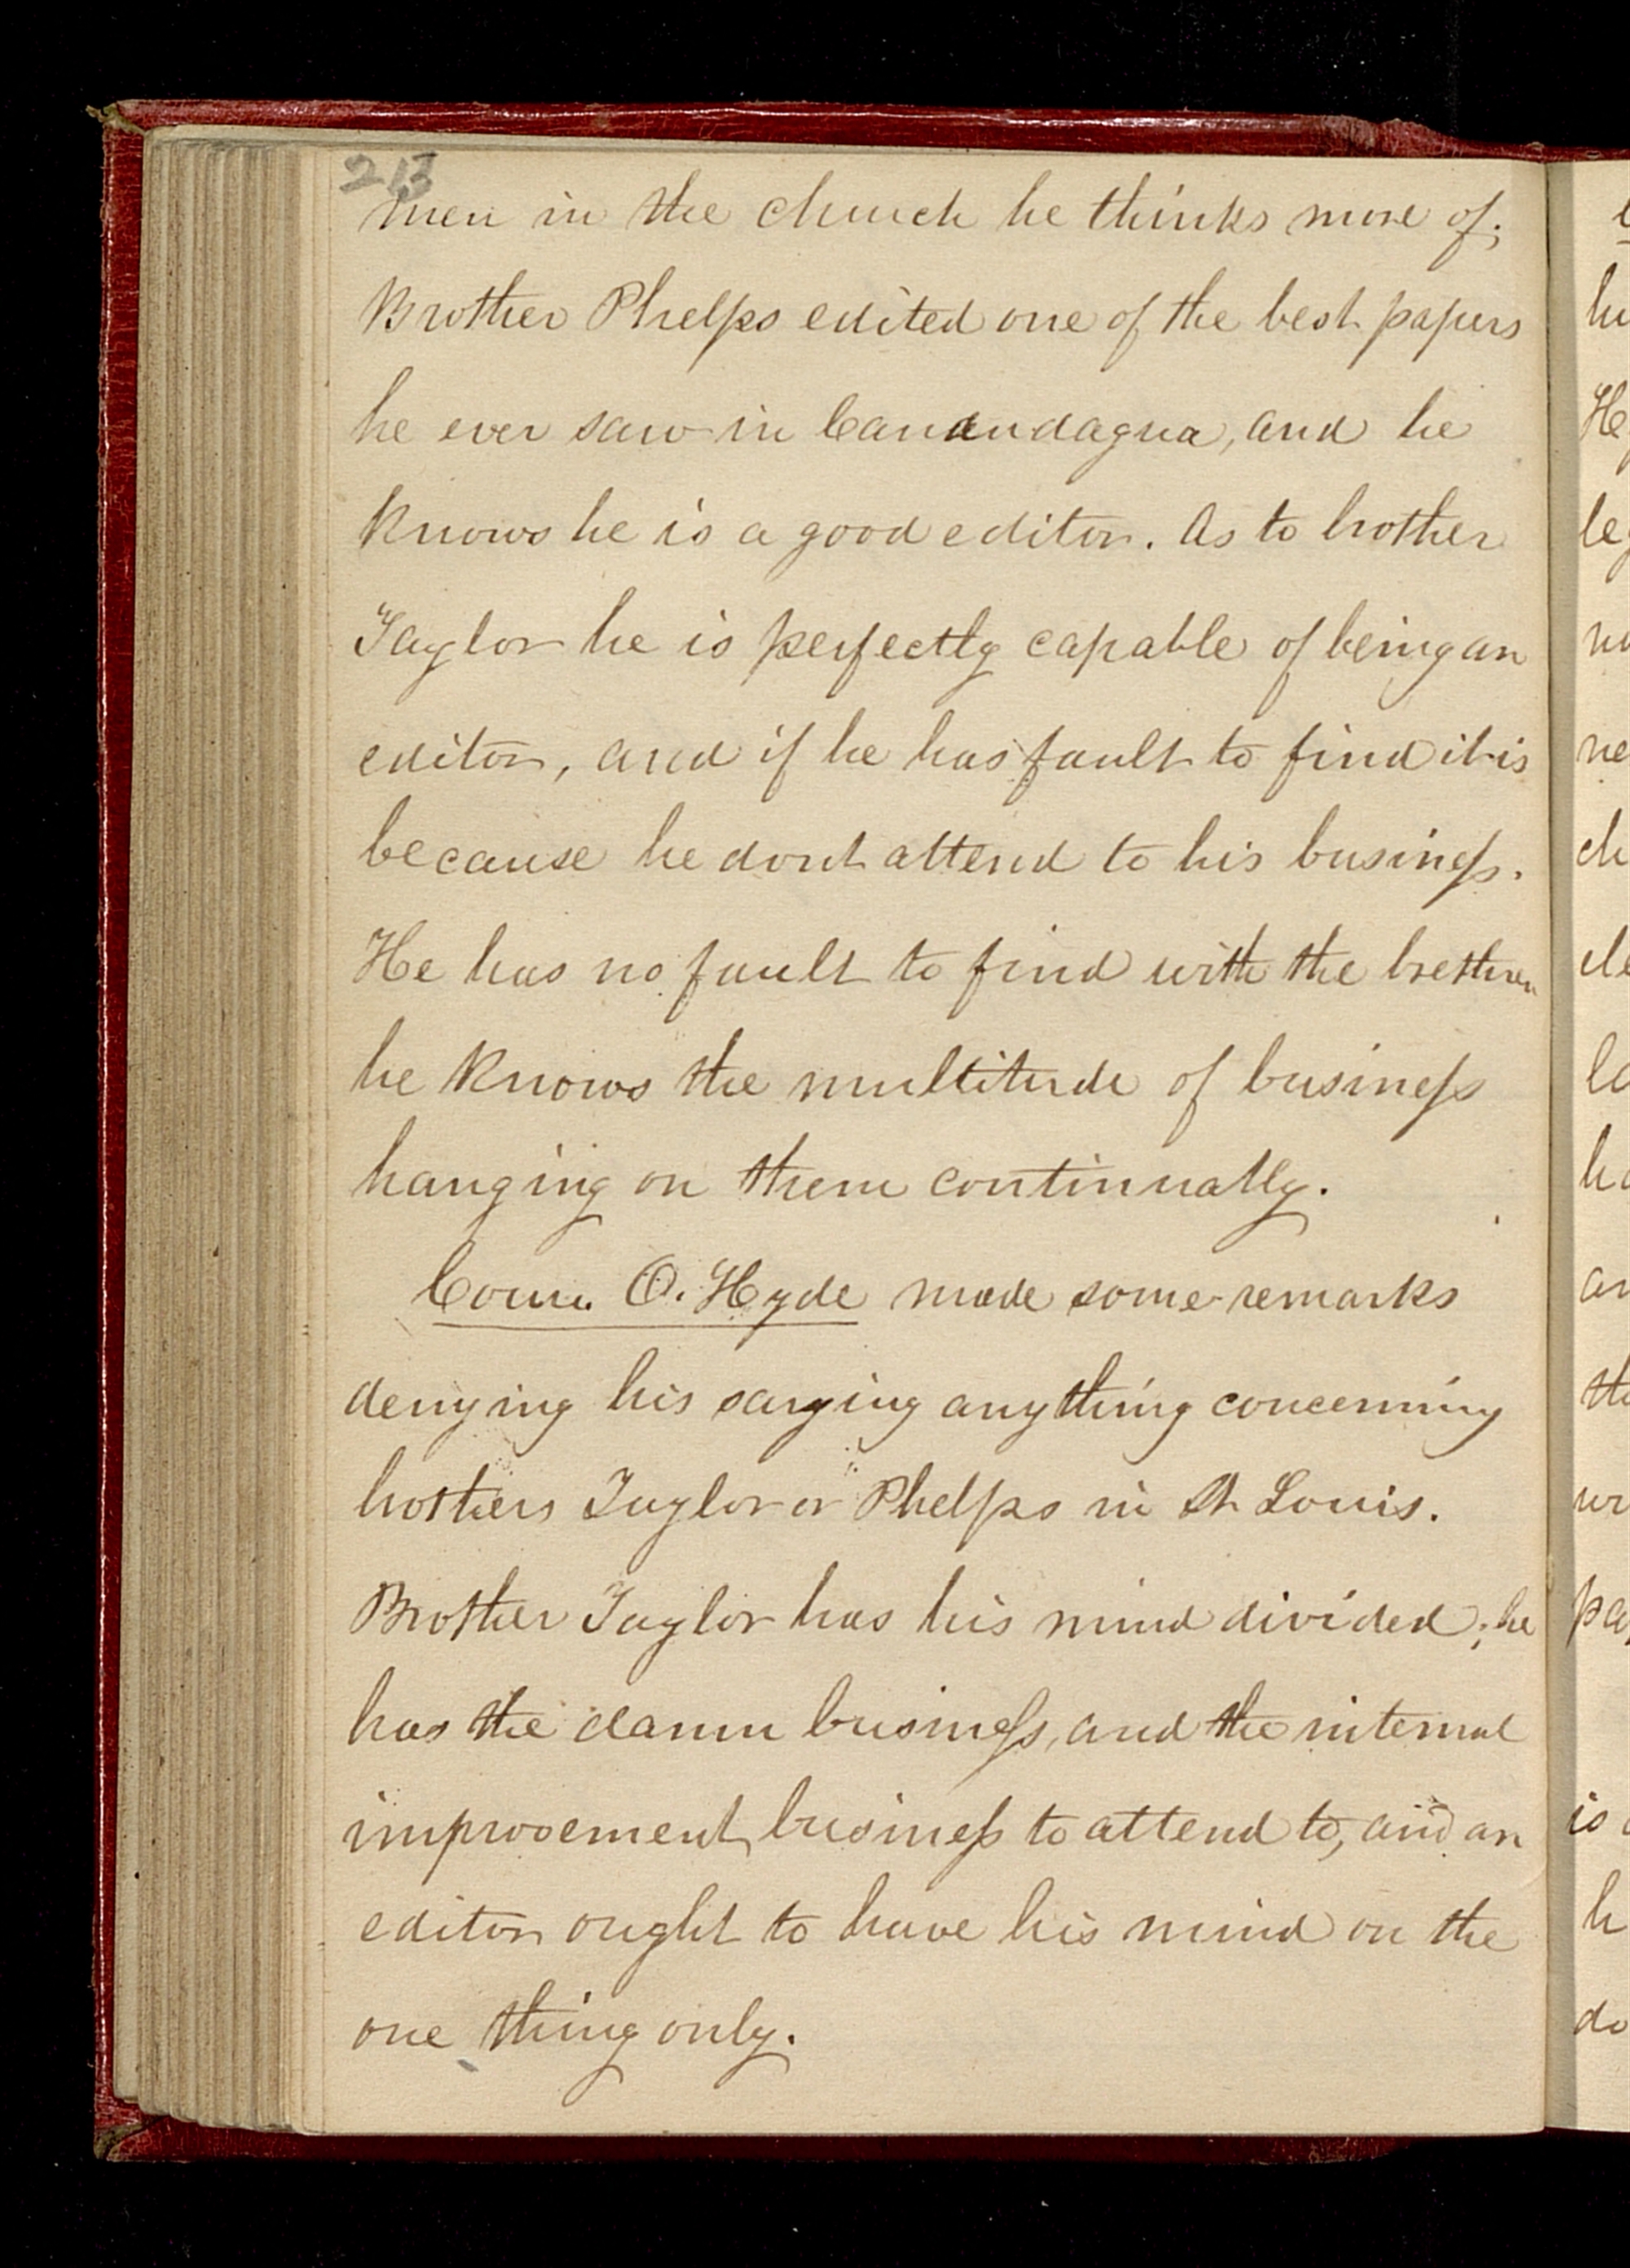 213
men in the church he thinks more of;
Brother Phelps edited one of the best papers
he ever saw in Canandagua, and he
knows he is a good editor. As to brother
Taylor he is perfectly capable of being an
editor, and if he has fault to find it is
because he dont attend to his business.
He has no fault to find with the brethren
he knows the multitude of business
hanging on them continually.
Coun. O. Hyde made some remarks
denying his saying anything concerning
brothers Taylor or Phelps in St Louis.
Brother Taylor has his mind divided; he
has the damn business, and the internal
improvement business to attend to, and an
editor ought to have his mind on the
one thing only.